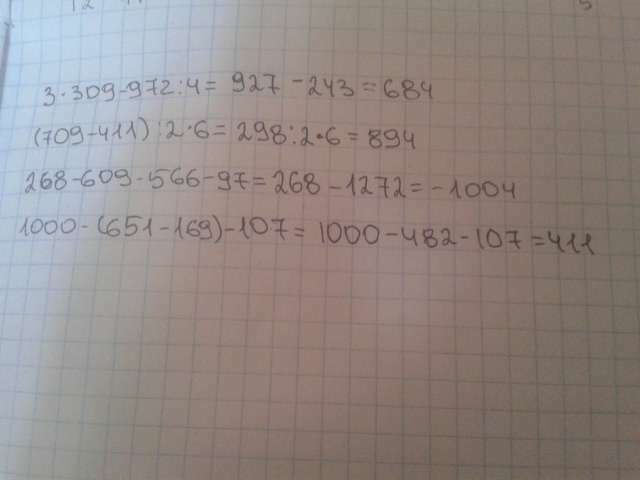 12
5
3·309-972:4= 927 -243=684
(709-411):2·6=298:2·6=894
268-609-566-97=268-1272=-1004
1000-(651-169)-107=1000-482-107=411